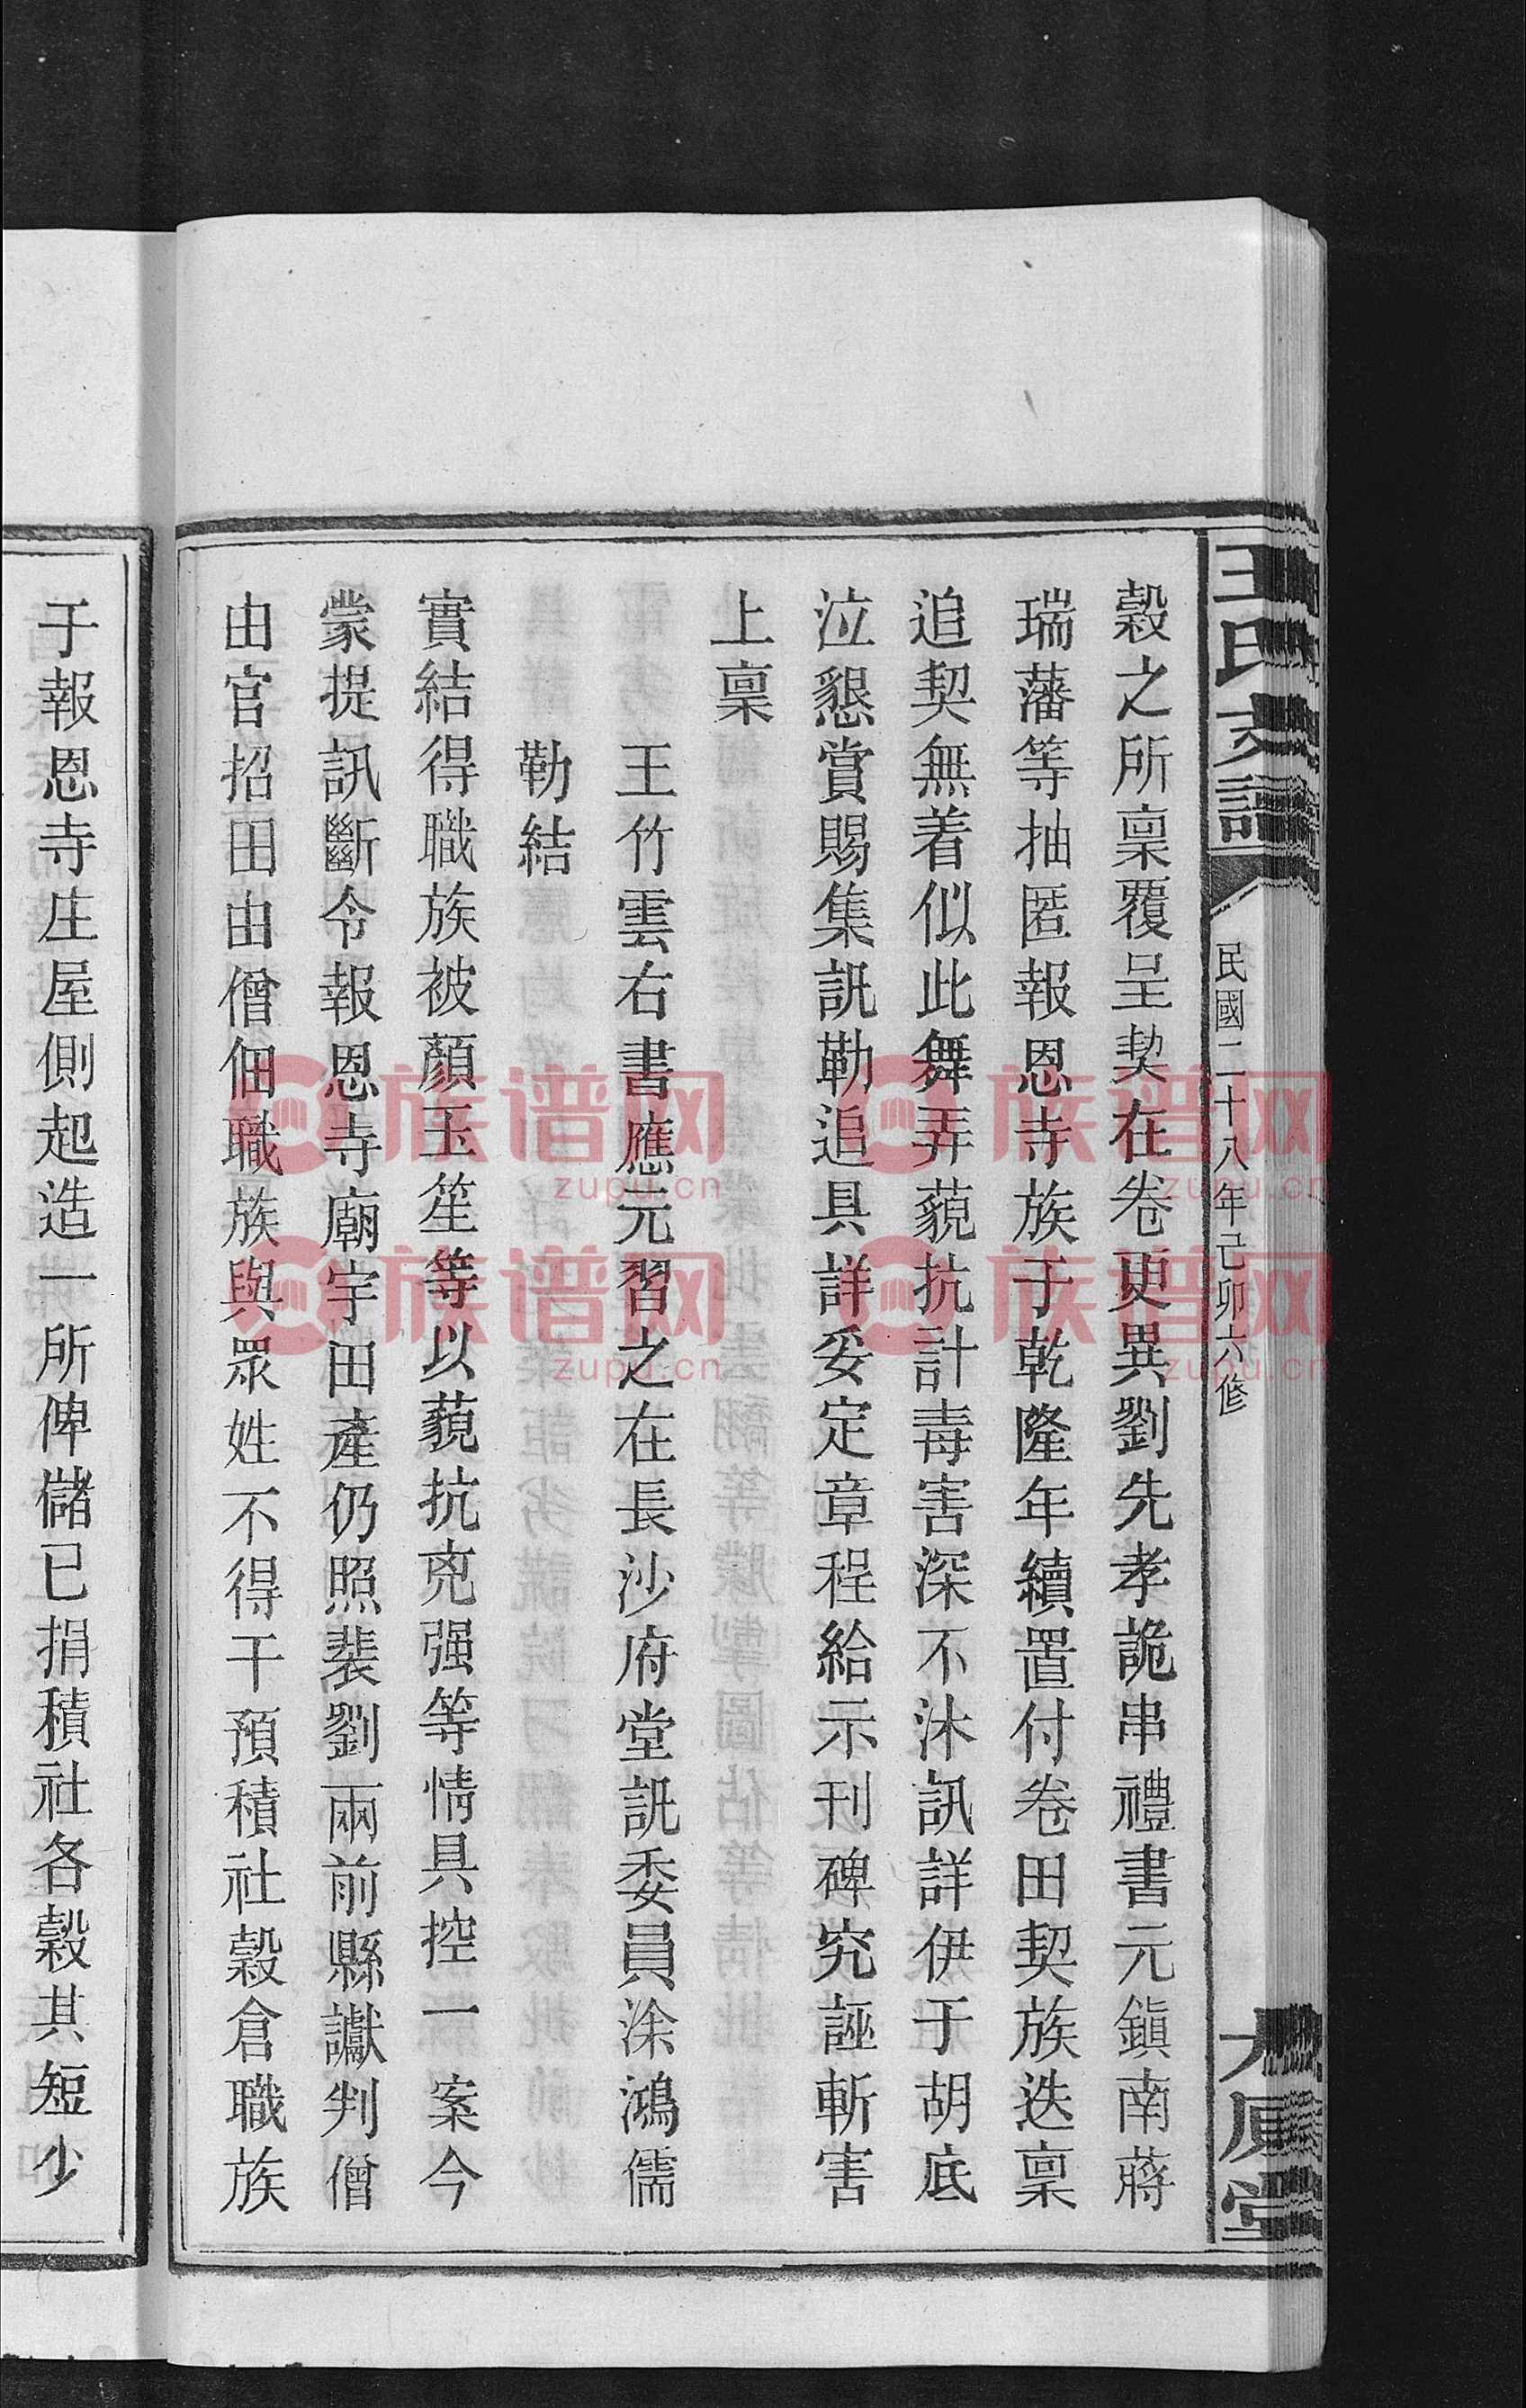 王氏支譜
民國二十八年己卯六修
厚堂
穀之所稟覆呈契在卷更異劉先孝詭串禮書元鎮南蔣
瑞藩等抽匿報恩寺族于乾隆年續置付卷田契族迭稟
追契無着似此舞弄藐抗計毒害深不沐訊詳伊于胡底
泣懇賞賜集訊勒追具詳妥定章程給示刊碑究誣斬害
上稟
王竹雲右書應元習之在長沙府堂訊委員涂鴻儒
勒結
實結得職族被顏玉笙等以藐抗兇强等情具控一案今
蒙提訊斷令報恩寺廟宇田產仍照裴劉兩前縣讞判僧
由官招田由僧佃職族與眾姓不得干預積社穀倉職族
于報恩寺庄屋側起造一所俾儲已捐積社各穀其短少
族谱网
zupu.cn
族谱网
zupu.cn
族谱网
zupu.cn
族谱网
zupu.cn